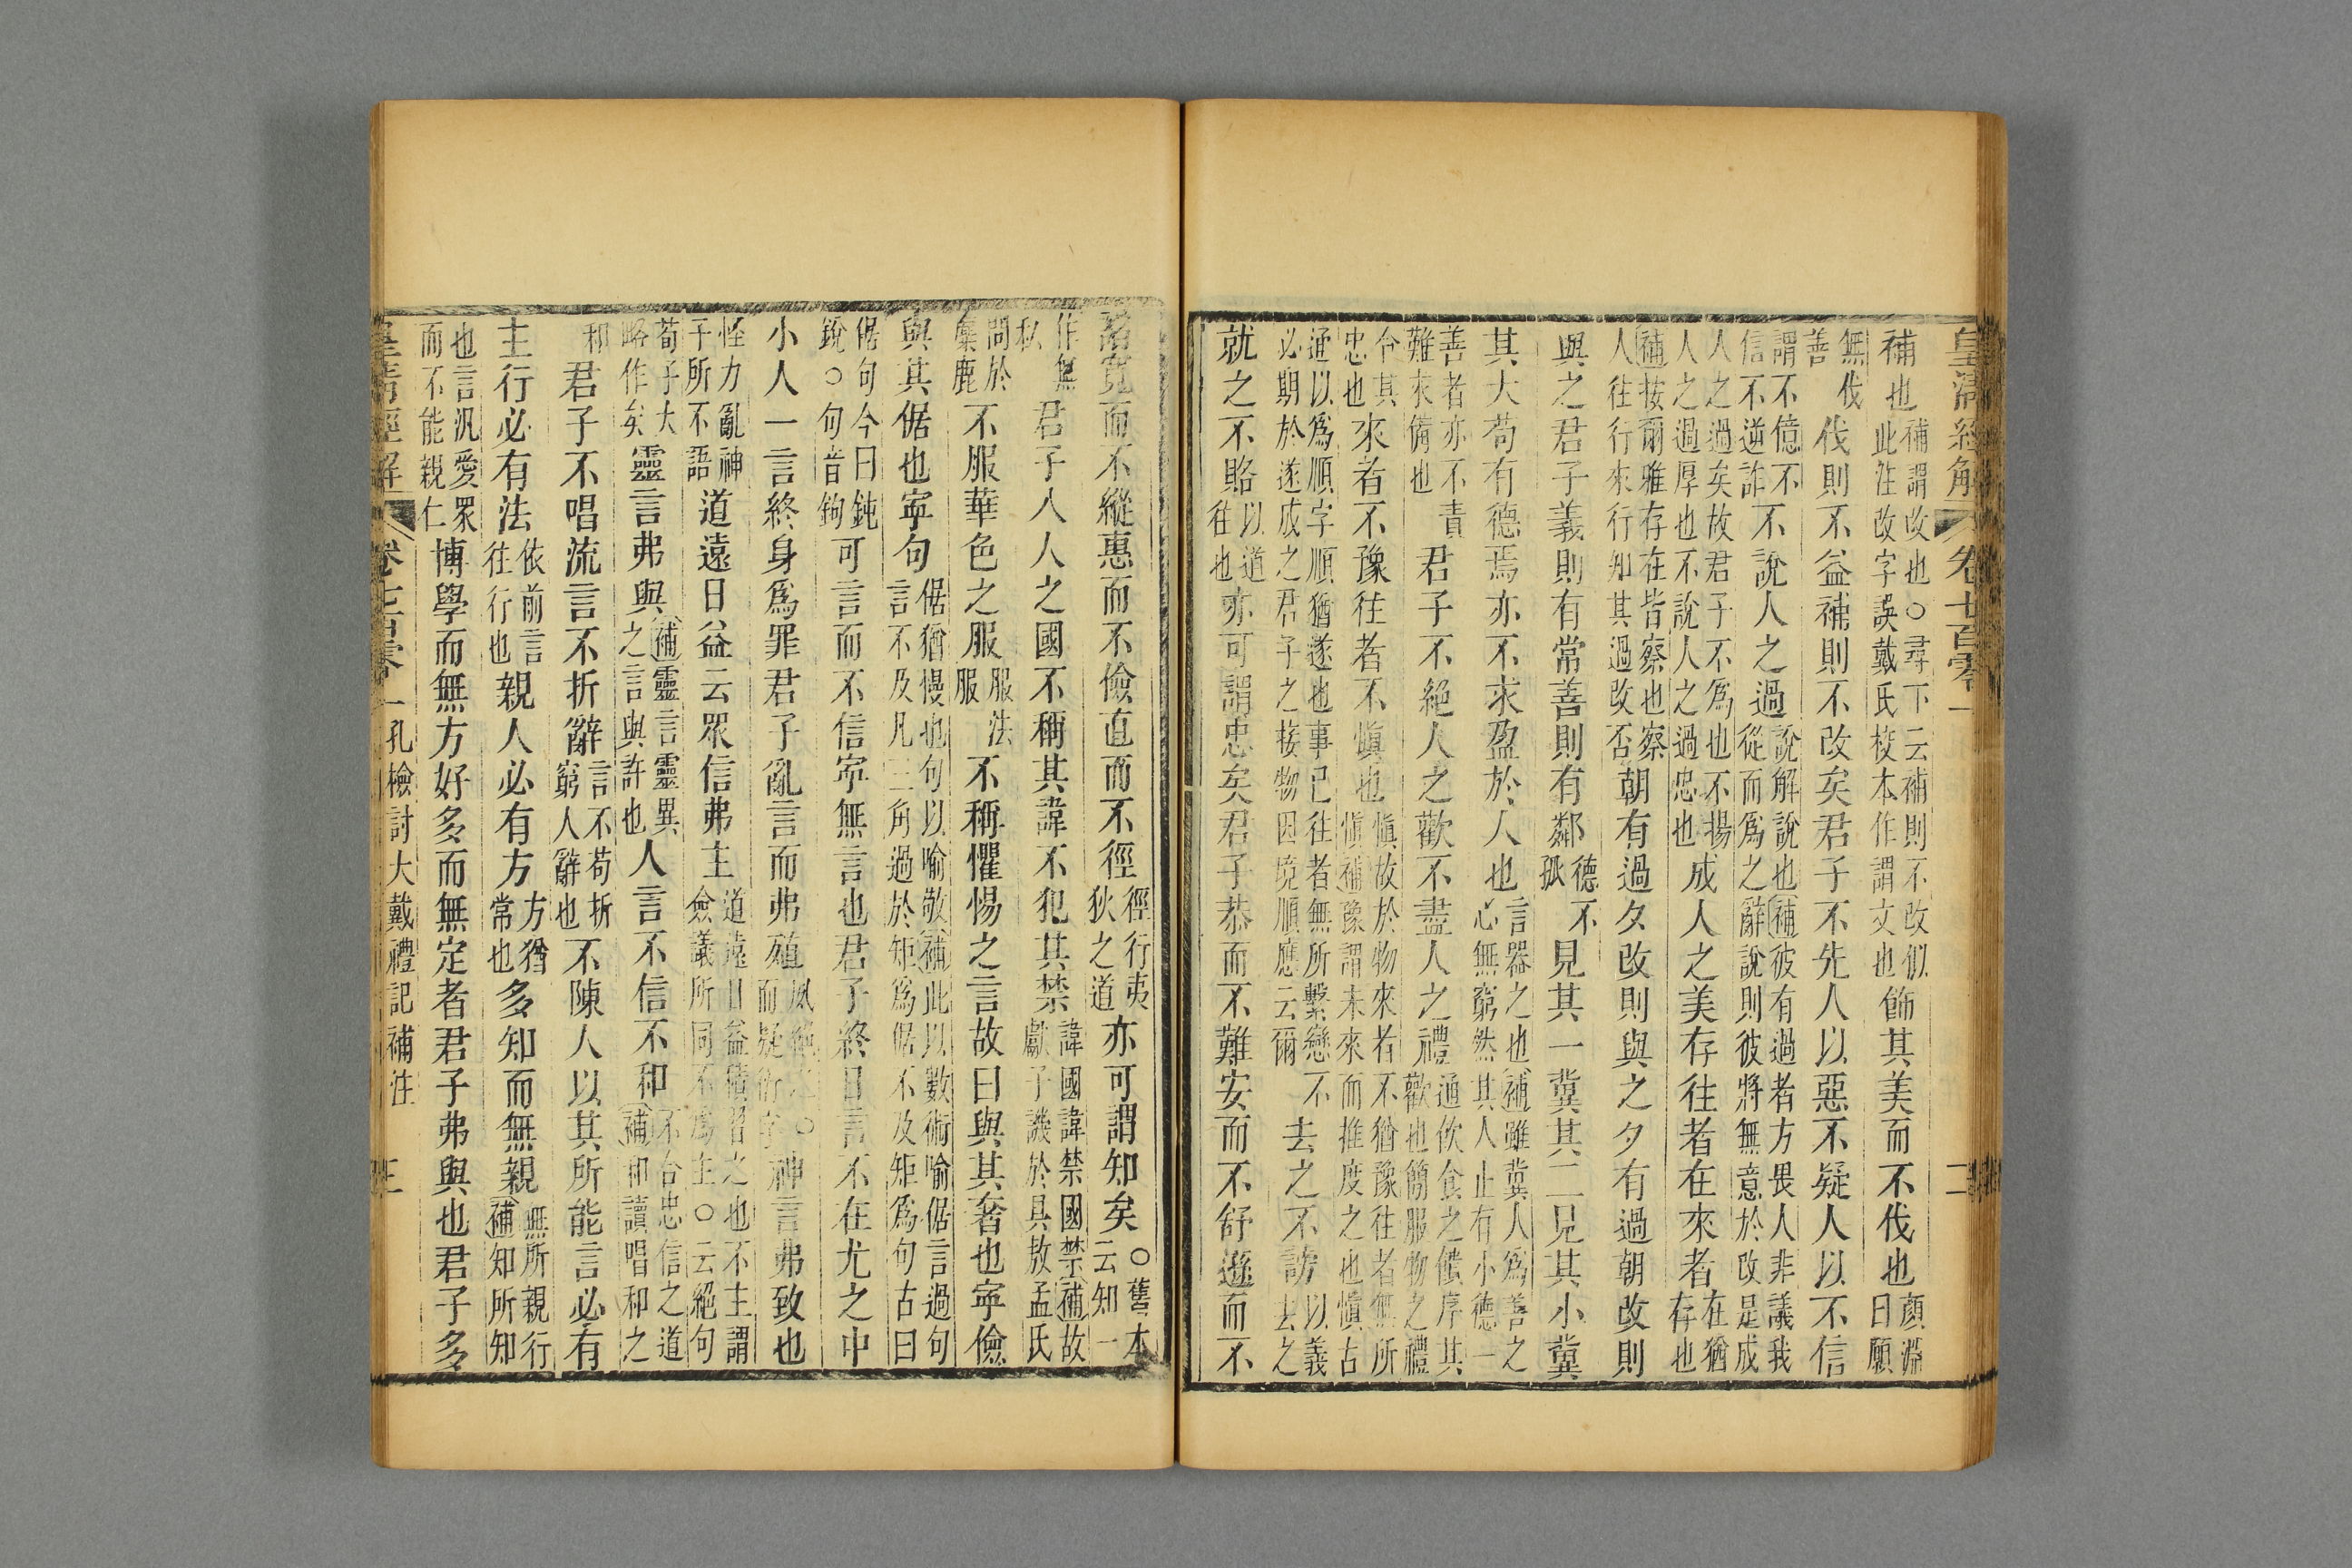 皇清經解 卷七百零一 二
補也補謂改也○尋下云補則不改似此注改字誤戴氏校本作謂文也飾其美而不伐也顏淵曰願
無伐善伐則不益補則不改矣君子不先人以惡不疑人以不信
謂不億不信不逆詐不說人之過說解說也補彼有過者方畏人非議我從而爲之辭說則彼將無意於改是成
人之過矣故君子不爲也不揚人之過厚也不說人之過忠也成人之美存往者在來者在猶存也
補按爾雅存在皆察也察人往行來行知其過改否朝有過夕改則與之夕有過朝改則
與之君子義則有常善則有鄰德不孤見其一冀其二見其小冀
其大苟有德焉亦不求盈於人也言器之也補雖冀人爲善之心無窮然其人止有小德一
善者亦不責難求備也君子不絕人之歡不盡人之禮通飲食之饋序其歡也簡服物之禮
令其忠也來者不豫往者不愼也愼故於物來者不猶豫往者無所愼補豫謂未來而推度之也愼古
通以爲順字順猶遂也事已往者無所繫戀不必期於遂成之君子之接物因境順應云爾去之不謗以義去之
就之不賂以道往也亦可謂忠矣君子恭而不難安而不舒遜而不
諂寬而不縱惠而不儉直而不徑徑行夷狄之道亦可謂知矣○舊本云知一
作無私君子入人之國不稱其諱不犯其禁諱國諱禁國禁補故獻子譏於具敖孟氏
問於麋鹿不服華色之服服法服不稱懼惕之言故曰與其奢也寧儉
與其倨也寧句倨猶慢也句以喻敬補此以數術喻倨言過句言不及凡三角過於矩爲倨不及矩爲句古曰
倨句今曰鈍銳○句音鉤可言而不信寧無言也君子終日言不在尤之中
小人一言終身爲罪君子亂言而弗殖夙絕之○而疑衍字神言弗致也
怪力亂神子所不語道遠日益云眾信弗主道遠日益積習之也不主謂僉議所同不爲主○云絕句
荀子大略作矣靈言弗與補靈言靈異之言與許也人言不信不和不合忠信之道補和讀唱和之
和君子不唱流言不折辭言不苟折窮人辭也不陳人以其所能言必有
主行必有法依前言往行也親人必有方方猶常也多知而無親無所親行補知所知
也言汎愛眾而不能親仁博學而無方好多而無定者君子弗與也君子多
皇清經解 卷七百零一 孔檢討大戴禮記補注 三